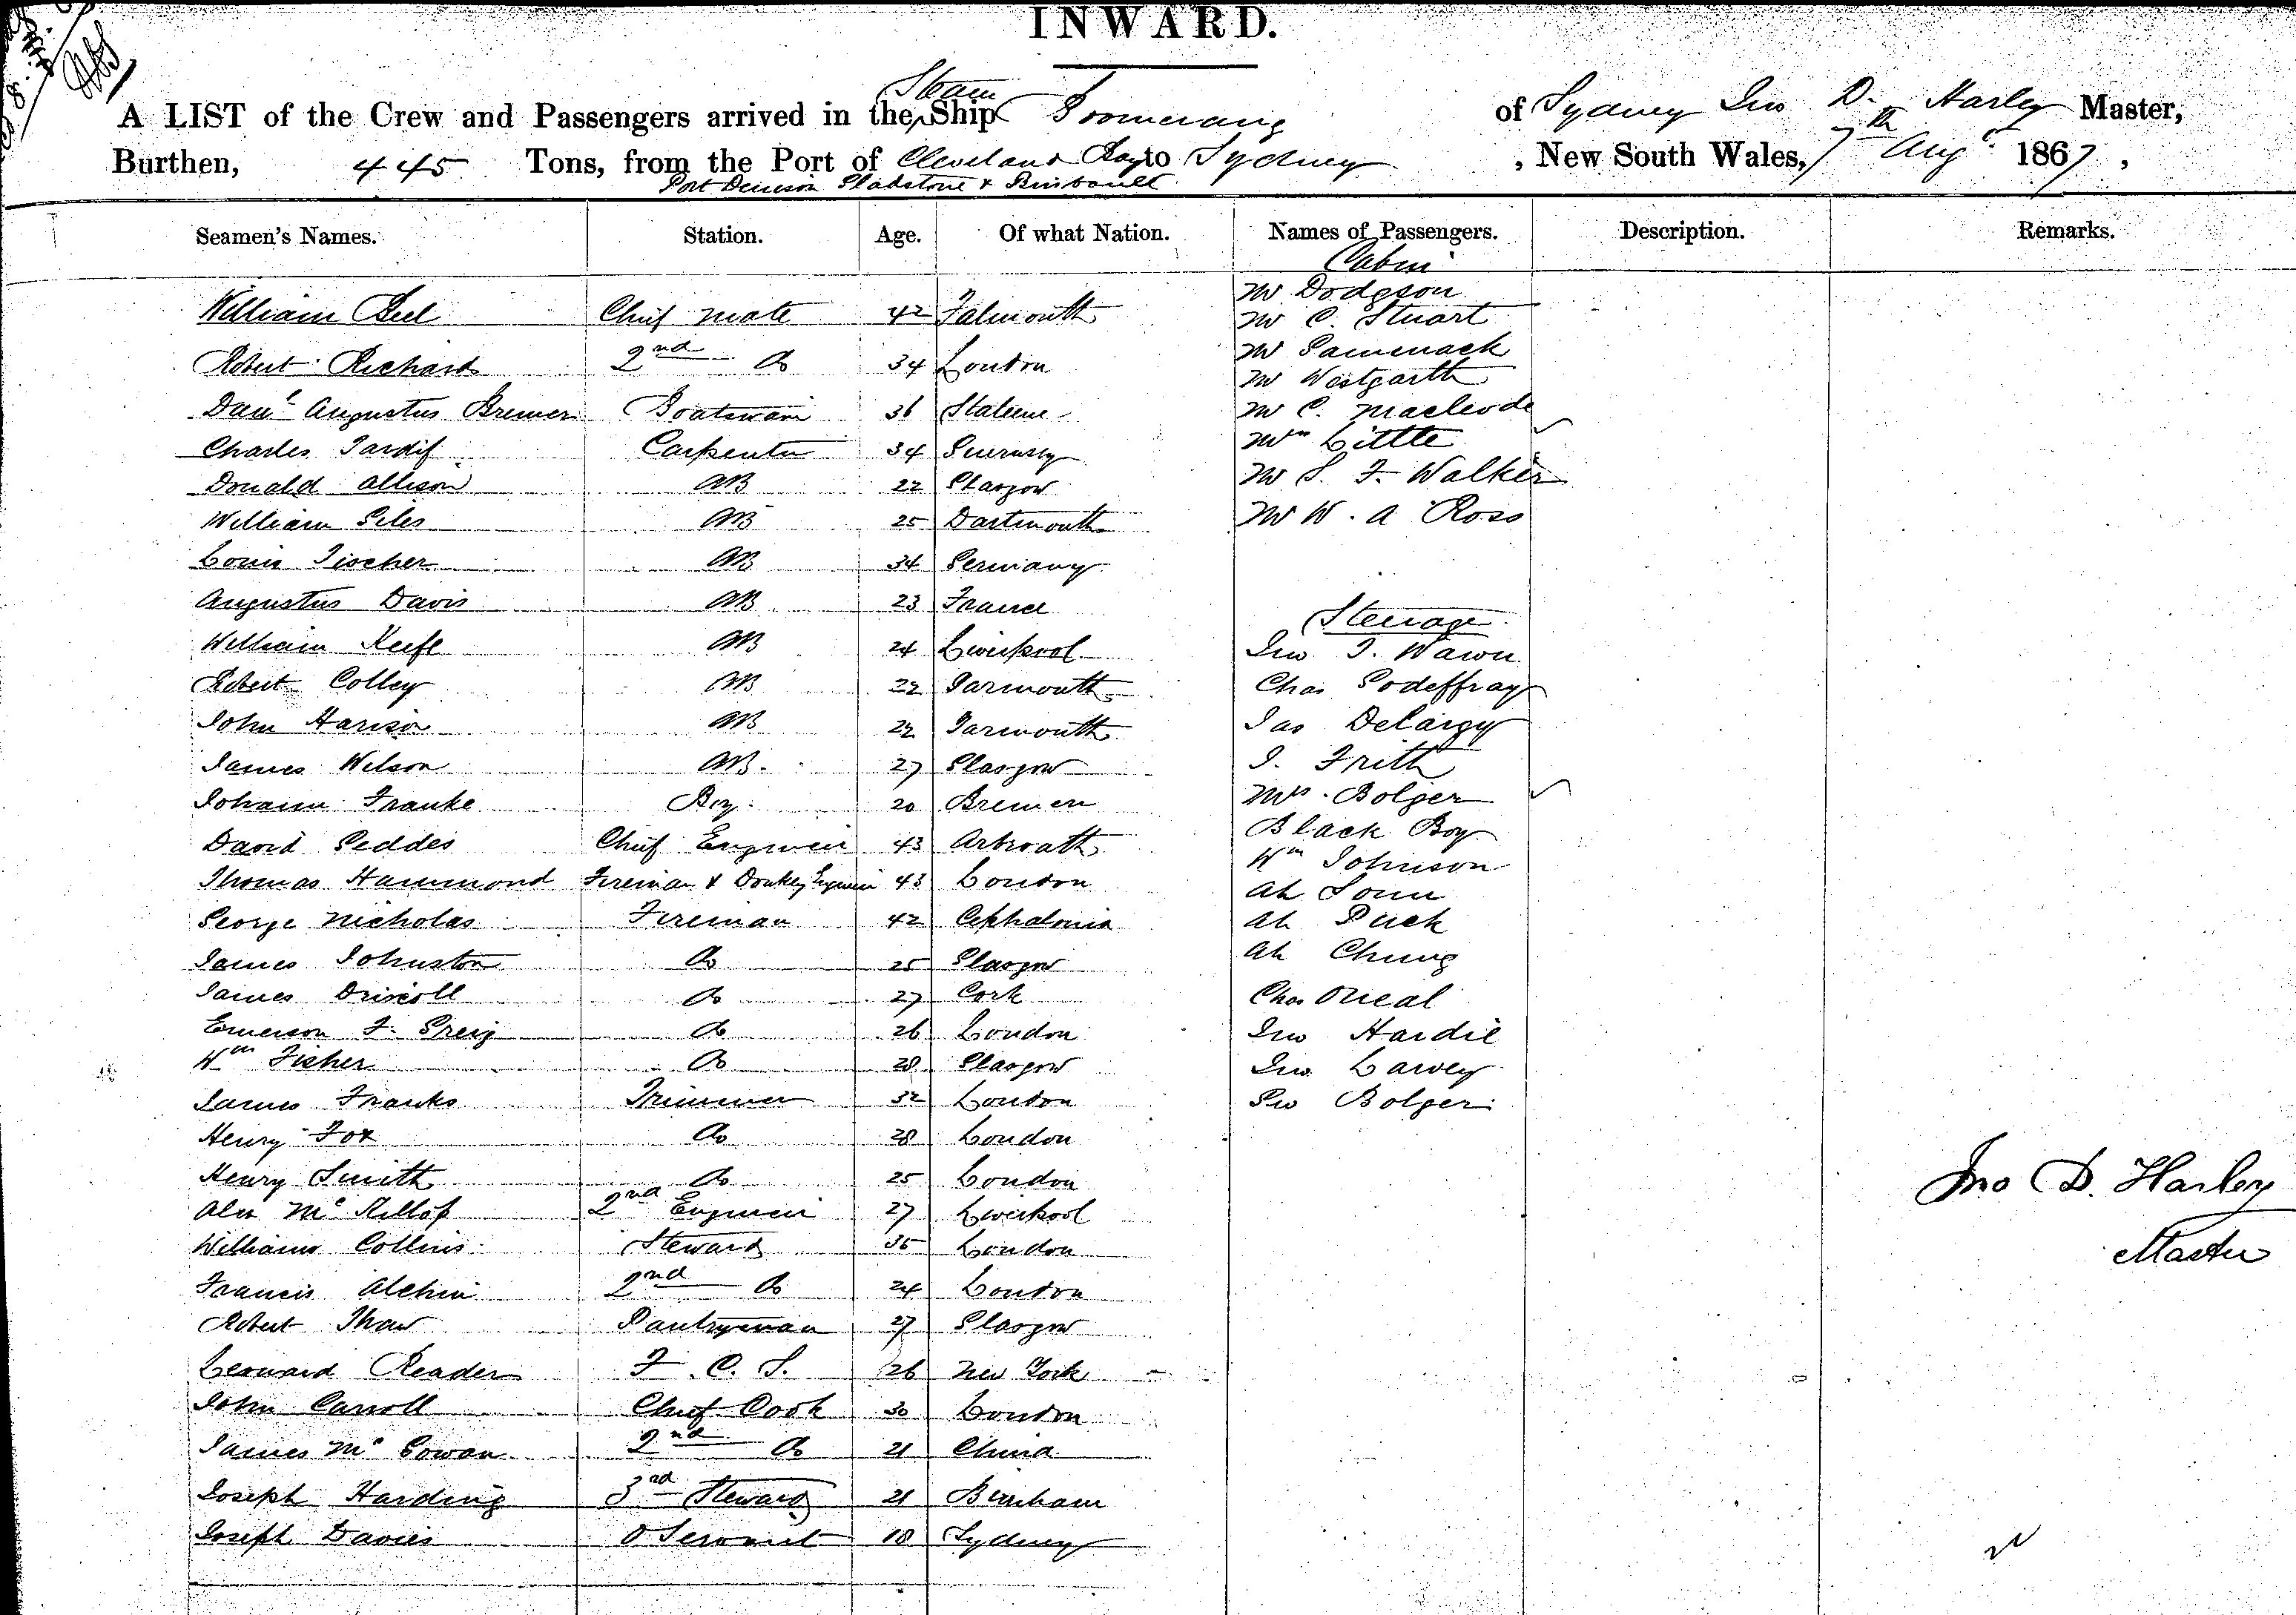 INWARD.
A LIST of the Crew and Passengers arrived in the Steam Ship Boomerang of Sydney Jno D. Harley Master,
Burthen, 445 Tons, from the Port of Cleveland Bay to Sydney, New South Wales, 7th Augt 1867,
Port Denison Gladstone &
Seamen's Names. Station. Age. Of what Nation. Names of Passengers. Description. Remarks.
Cabin
Mr Dodgson
William Chief Mate 42 Falmouth Mr C. Stuart
Robert Richard 2nd Do 34 London Mr
Mr Westgarth
Danl Augustus Bremer Boatswain 36 Mr C. Macleode
Charles Tardif Carpenter 34 Guernsey Mrs Little
Donald Allison AB 22 Glasgow Mr S. F. Walker
William Giles AB 25 Dartmouth Mr W. A Ross
Louis Fischer AB 34 Germany
Augustus Davis AB 23 France Steerage
William Keefe AB 24 Liverpool Jno T. Wawn
Robert Colley AB 22 Yarmouth Chas Godeffray
John Harison AB 22 Yarmouth Jas Delargy
James Wilson AB. 27 Glasgow J. Frith
Johann Franke Boy 20 Bremen Mrs Bolger
David Geddes Chief Engineer 43 Arbroath Black Boy
Wm Johnson
Thomas Hammond Fireman & Donkey Engineer 43 London Ah
George Nicholas Fireman 42 Cephalonia Ah
James Johnston Do 25 Glasgow Ah Chung
James Driscoll Do 27 Cork Chas Oneal
Emerson F. Greig Do 26 London Jno Hardie
Wm Fisher Do 28 Glasgow Jno
James Franks Trimmer 32 London Bolger
Henry Fox Do 28 London
Henry Smith Do 25 London Jno D. Harley
Alex McKillop 2nd Engineer 27 Liverpool
William Collins Steward 35 London Master
Francis Alchin 2nd Do 24 London
Robert Thaw Pantryman 27 Glasgow
Leonard Reader F. C. S. 26 New York
John Carroll Chief Cook 30 London
James McCowan 2nd Do 21 China
Joseph Harding 3rd Steward 21
Joseph Davies O Servant 18 Sydney